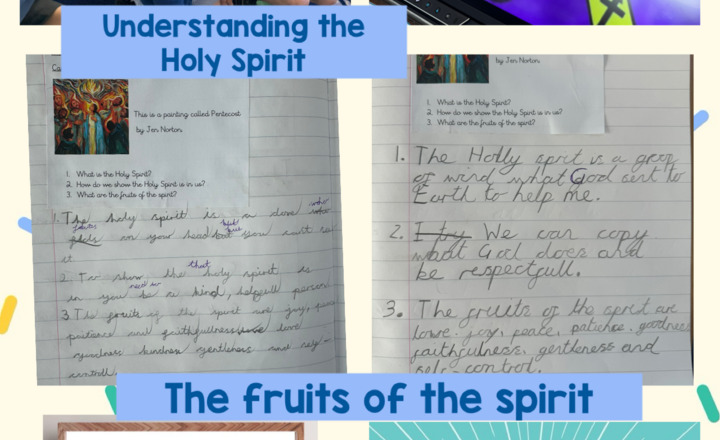 Understanding the
Holy Spirit
This is a painting called Pentecost
by Jen Norton.
1. What is the Holy Spirit?
2. How do we show the Holy Spirit is in us?
3. What are the fruits of the spirit?
1. The holy spirit is a dove
in you head but you can't see
it
2. To show that the holy spirit is
in you be a kind, helpfull person
3 The fruits of the spirit are joy, peace
patience and faithfullness love
kindness gentleness and self
controll.
by Jen Norton
1. What is the Holy Spirit?
2. How do we show the Holy Spirit is in us?
3. What are the fruits of the spirit?
1. The Holly sprit is a
of wind what God sent to
Earth to help me.
2. I try We can copy
what God does and
be respectfull.
3. The fruits of the sprit are
love, joy, peace, patience, goodness
faithfulness, gentleness and
self-control.
The fruits of the spirit